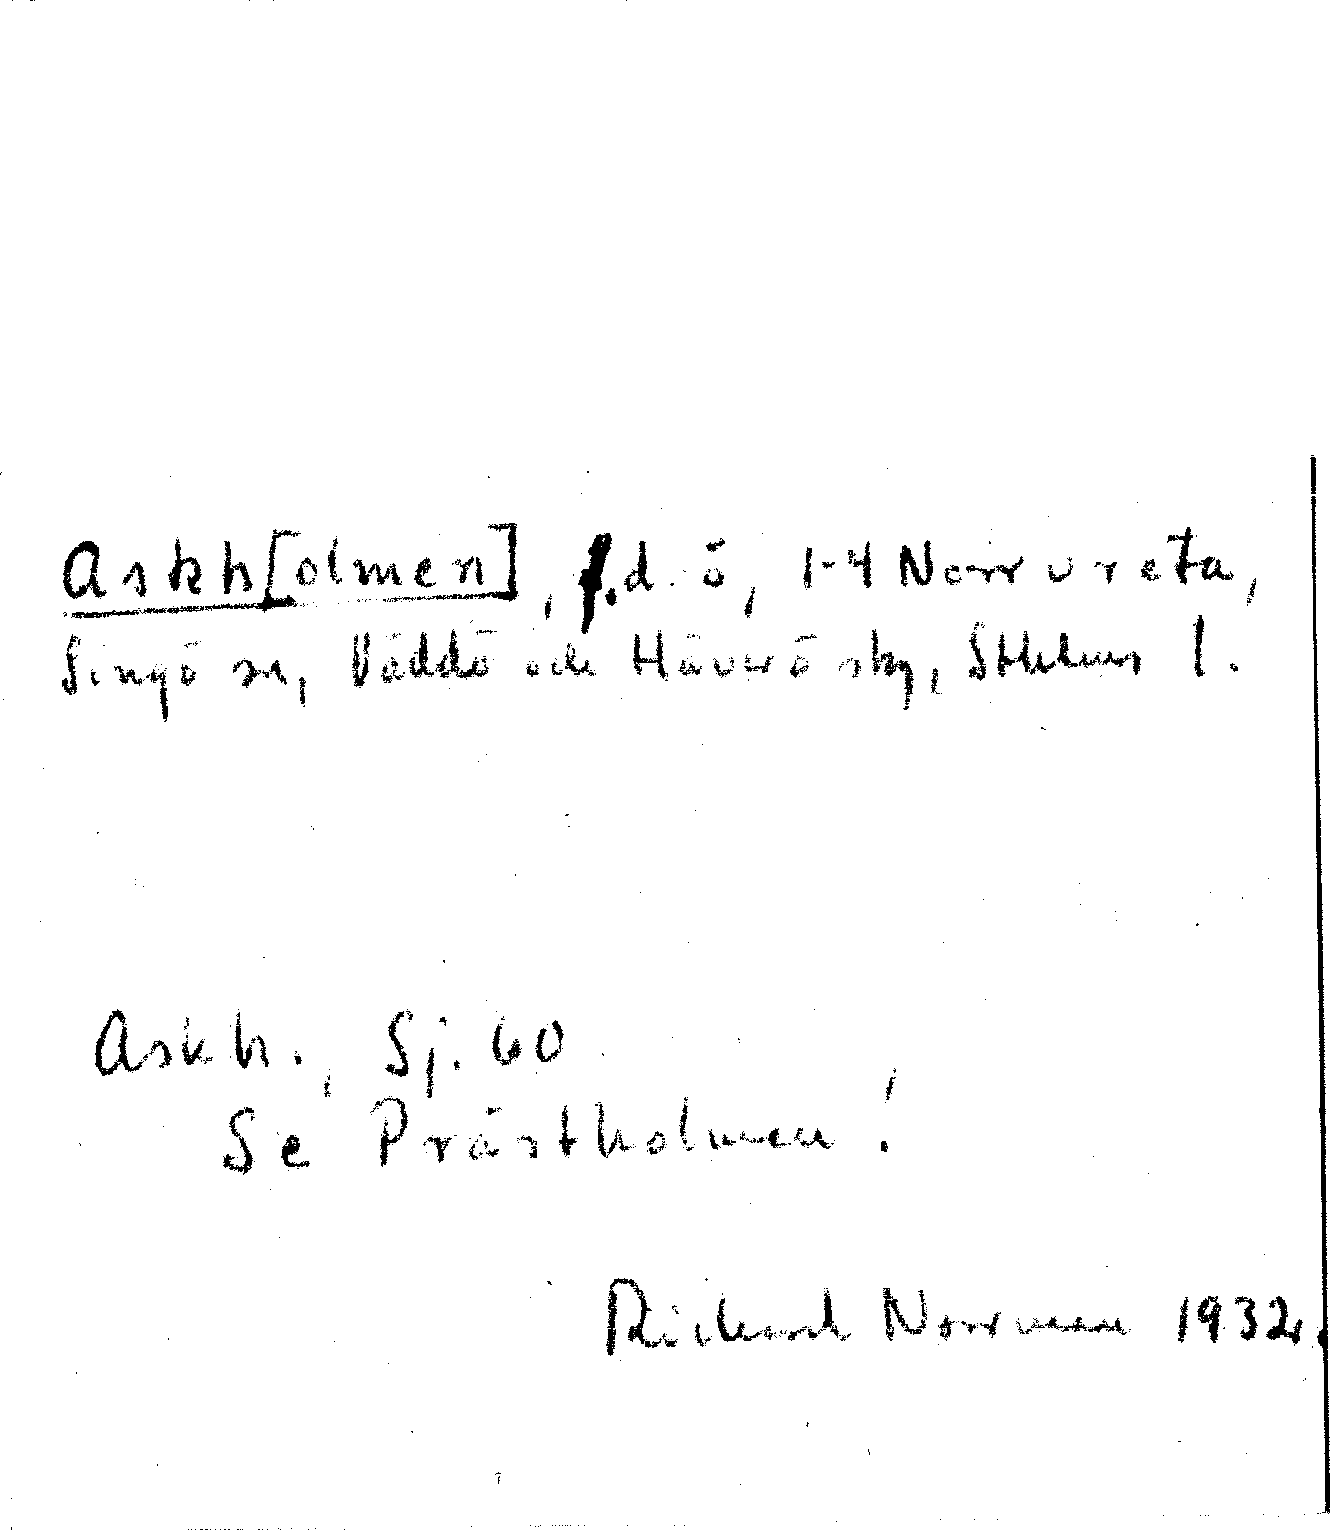 Askh[olmen], f.d. ö, 1-4 Norrvreta,
Singö sn, Väddö och Häverö skg, Sthlms l.
Askh., Sj. 60
Se Prästholmen!
Rickard Norrman 1932.